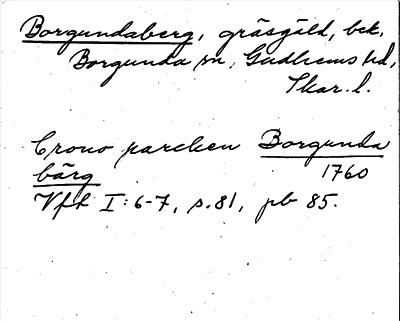 Borgundaberg, gräsgäld, bek.
Borgunda sn, Gudhems hd,
Skar. l.
Crono parcken Borgunda
bärg 1760
Vft I: 6-7, s. 81, pb 85.